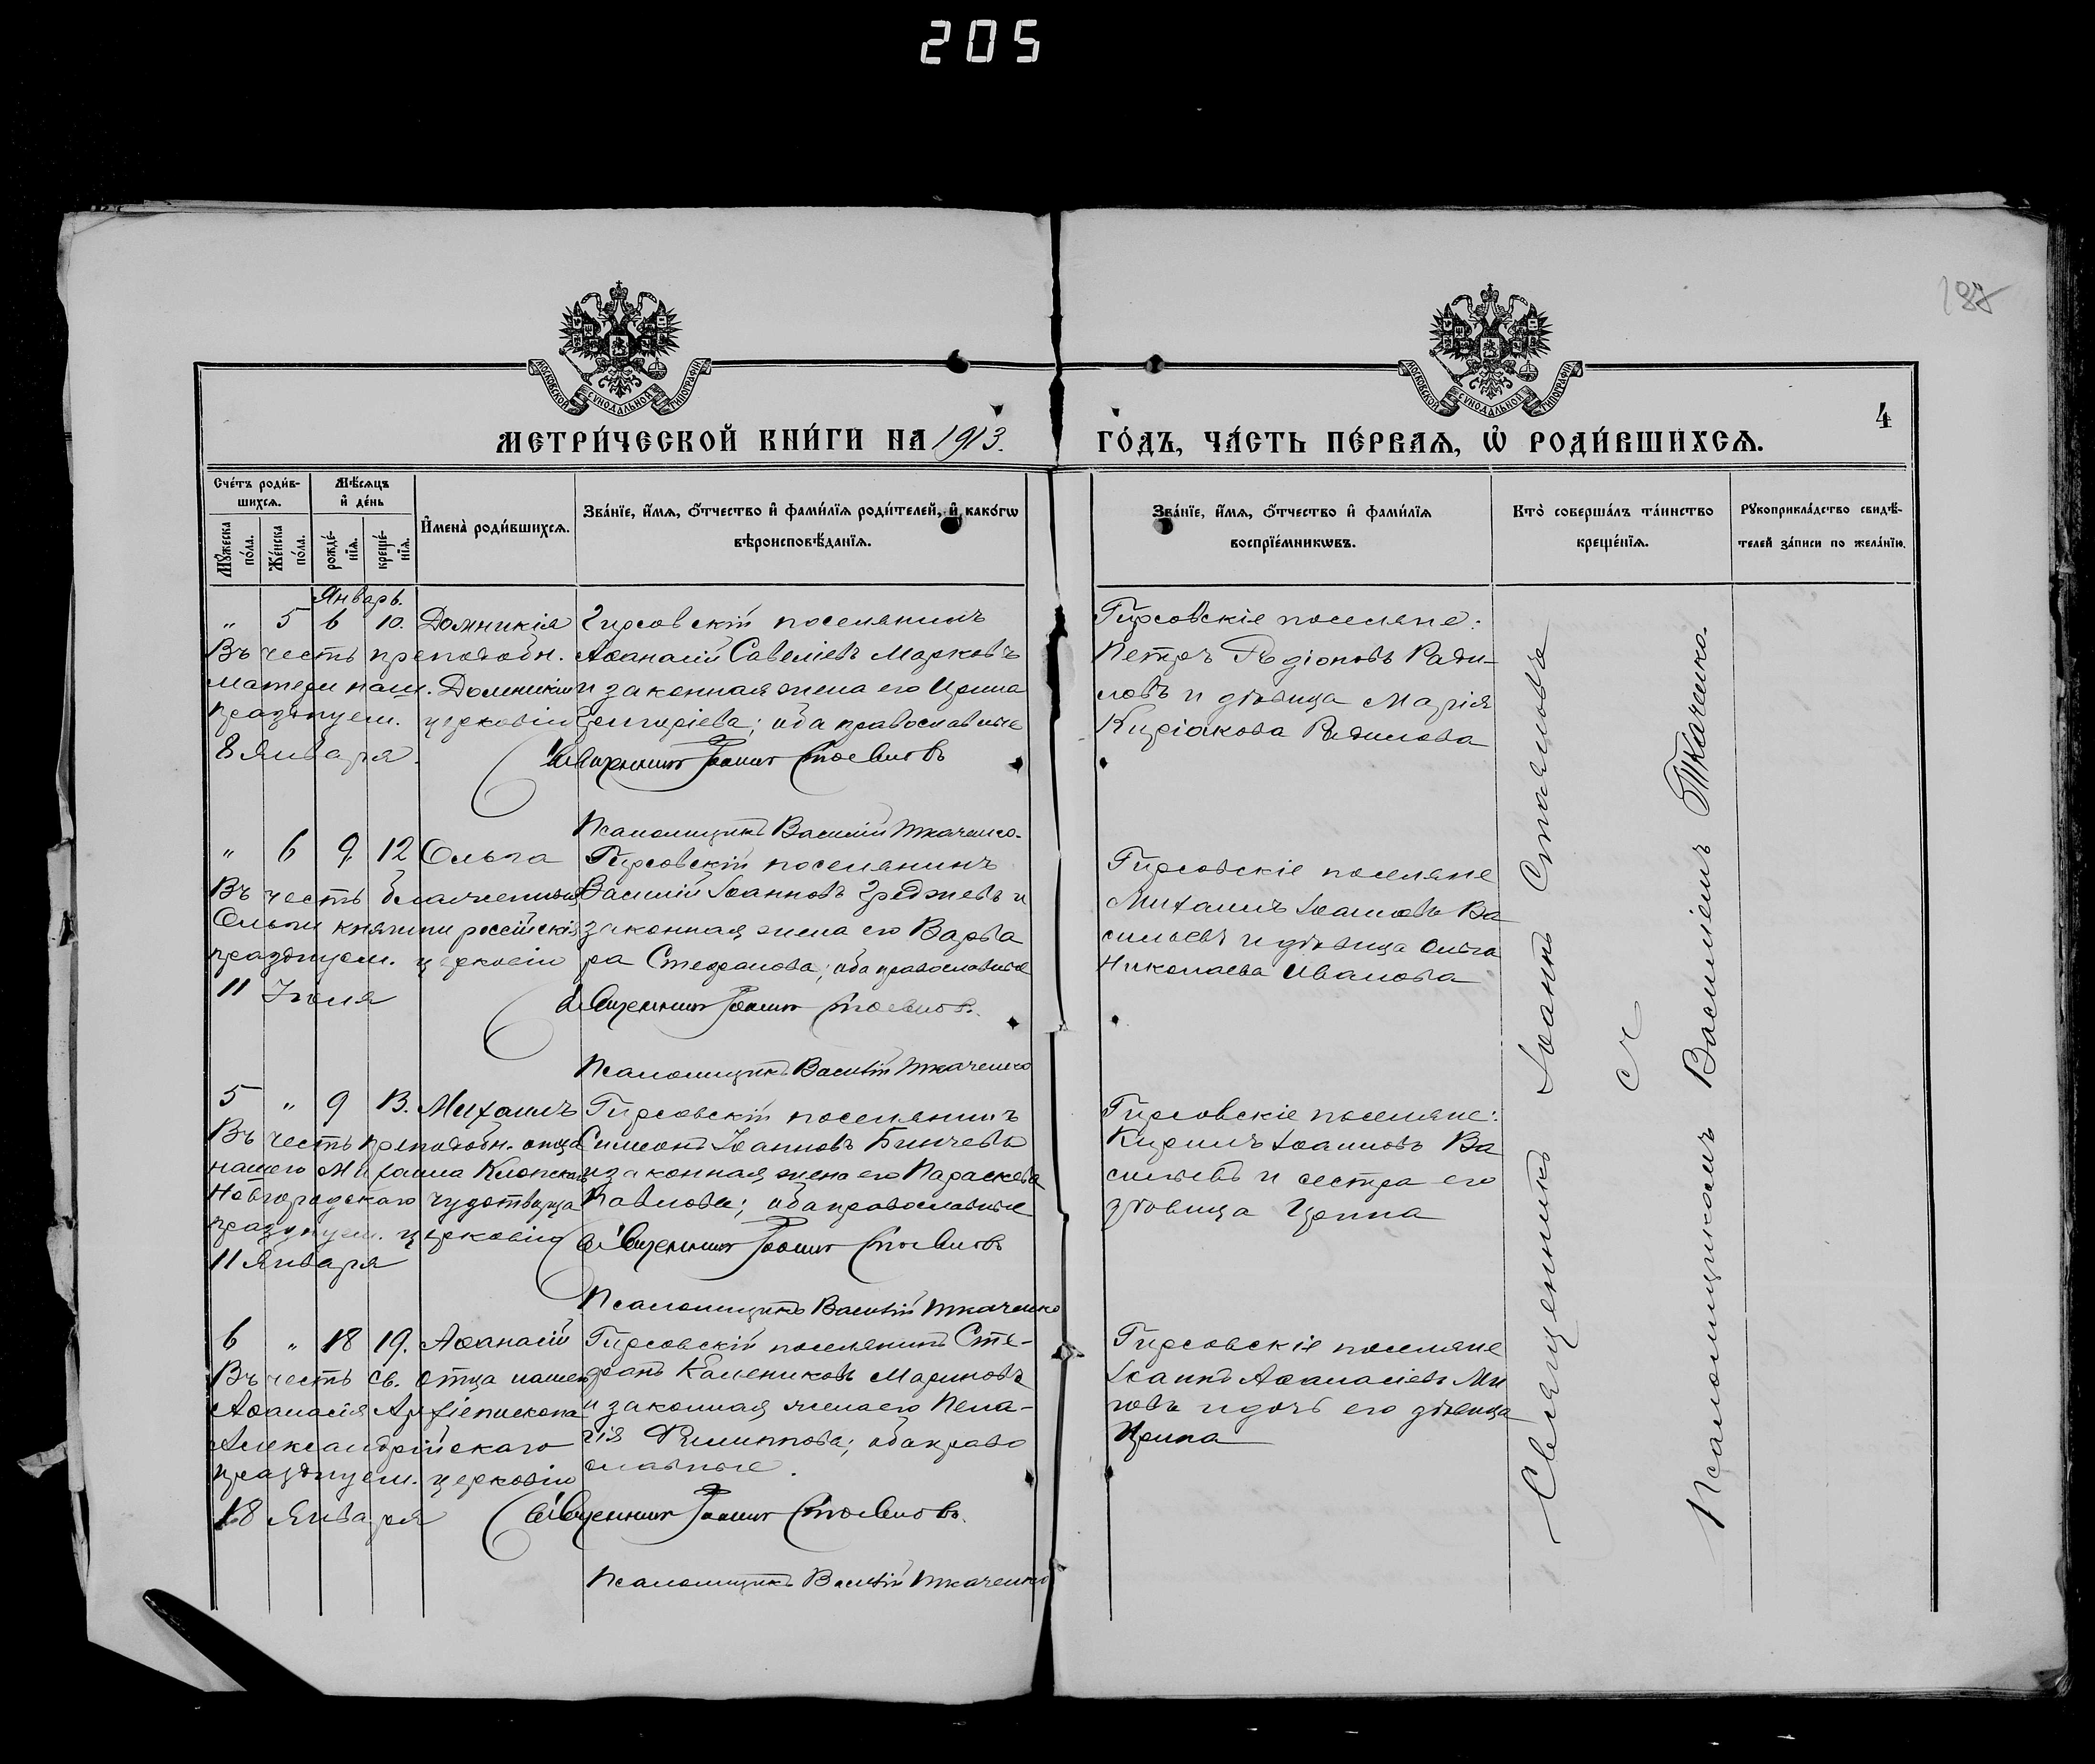 205
188
МОСКОВСКОЙ СУНОДАЛЬНОЙ ТИПОГРАФІИ
МОСКОВСКОЙ СУНОДАЛЬНОЙ ТИПОГРАФІИ
4
МЕТРИ́ЧЕСКОЙ КНИ́ГИ НА 1913. ГО́ДЪ, ЧА́СТЬ ПЕ́РВАѦ, Ѡ҆ РОДИ́ВШИХСѦ.
Счéтъ роди́в-
шихсѧ.
Мѣ́сѧцъ
и҆ де́нь
Мꙋ́жеска
по́ла.
Же́нска
по́ла.
рожде́-
нїѧ.
креще́-
нїѧ.
И҆мена̀ роди́вшихсѧ.
Зва́нїе, и҆́мѧ, ѻ҆́тчество и҆ фами́лїѧ роди́телей, и҆ како́гѡ
вѣроисповѣ́данїѧ.
Зва́нїе, и҆́мѧ, ѻ҆́тчество и҆ фами́лїѧ
воспрїе́мникѡвъ.
Кто̀ соверша́лъ та́инство
креще́нїѧ.
Рꙋкоприкла́дство свидѣ́-
телей за́писи по жела́нїю.
Январь.
" 5 6 10. Домникія
Въ честь преподобн.
матери наш. Домникіи
празднуем. церковію
8 Января.
Гирсовскій поселянинъ
Аѳанасій Савеліевъ Марковъ
и законная жена его Ирина
Григоріева; оба православные
Священникъ Іоаннъ Стоевиовъ
Псаломщикъ Василій Ткаченко.
Гирсовскіе поселяне:
Петръ Родіоновъ Ради-
ловъ и дѣвица Марія
Киріакова Радилова
" 6 9 12 Ольга
Въ честь блаженныя
Ольги княгини россійскія
празднуем. церковію
11 Іюля
Гирсовскій поселянинъ
Василій Іоанновъ Греджевъ и
законная жена его Варва
ра Стефанова; оба православные
Священникъ Іоаннъ
Псаломщикъ Василій Ткаченко
Гирсовскіе поселяне
Михаилъ Іоанновъ Ва
сильевъ и дѣвица Ольга
Николаева Иванова
5 " 9 13. Михаилъ
Въ честь преподобн. отца
нашего Михаила Клопскаго
Новгородскаго чудотворца
празднуем. церковію
11 Января
Гирсовскій поселянинъ
Симеонъ Іоанновъ Бинчевъ
и законная жена его Параскева
Павлова; оба православные
Священникъ Іоаннъ
Псаломщикъ Василій Ткаченко
Гирсовскіе поселяне:
Кириллъ Іоанновъ Ва
сильевъ и сестра его
дѣвица Ирина
6 " 18 19. Аѳанасій
Въ честь св. отца нашего
Аѳанасія Архіепископа
Александрійскаго
празднуем. церковію
18 Января
Гирсовскій поселянинъ Сте-
фанъ Калениковъ Мариновъ
и законная жена его Пела-
гія Филиппова; оба право
славные.
Священникъ Іоаннъ
Псаломщикъ Василій Ткаченко
Гирсовскіе поселяне
Іоаннъ Аѳанасіевъ Ми
ковъ и дочь его дѣвица
Ирина
Священникъ Іоаннъ
съ
Псаломщикомъ Василіемъ Ткаченко.